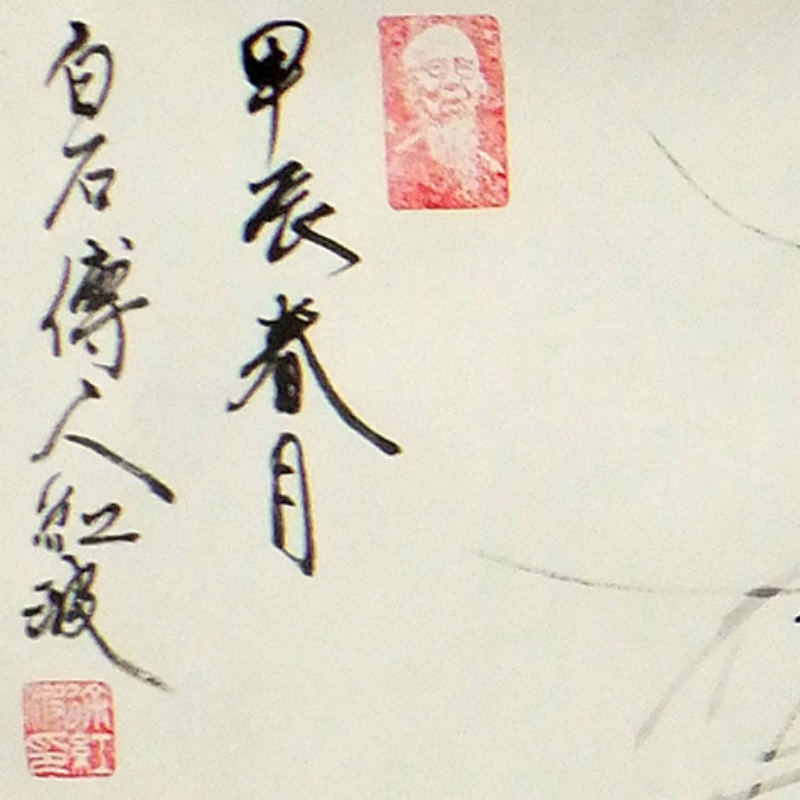 甲辰春月
白石傳人紅波